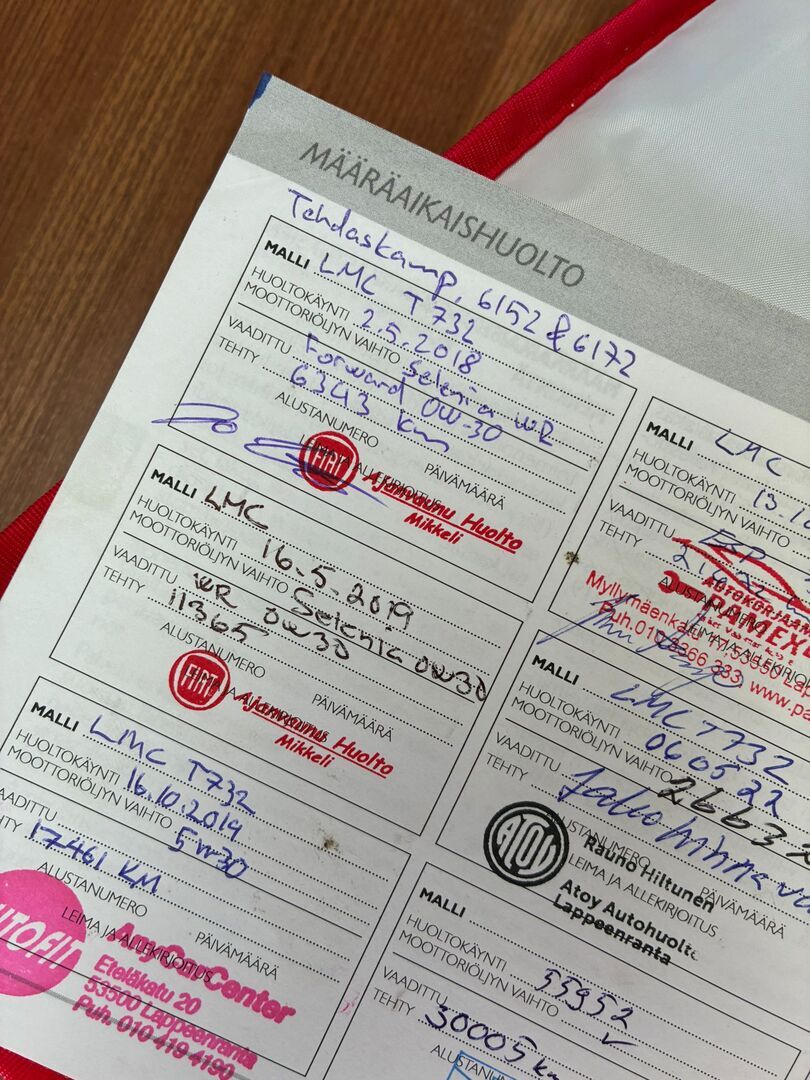 MÄÄRÄAIKAISHUOLTO
Tehdaskamp. 6152 & 6172
MALLI LMC T732
HUOLTOKÄYNTI 2.5.2018
MOOTTORIÖLJYN VAIHTO Selenia WR
VAADITTU Forward 0W-30
TEHTY 6343 km
ALUSTANUMERO
LEIMA JA ALLEKIRJOITUS PÄIVÄMÄÄRÄ
FIAT
Ajanvaunu Huolto
Mikkeli
MALLI LMC
HUOLTOKÄYNTI 16.5.2019
MOOTTORIÖLJYN VAIHTO Selenia 0W30
VAADITTU WR 0W30
TEHTY 11365
ALUSTANUMERO
LEIMA JA ALLEKIRJOITUS PÄIVÄMÄÄRÄ
FIAT
Ajanvaunu Huolto
Mikkeli
MALLI LMC T732
HUOLTOKÄYNTI 16.10.2019
MOOTTORIÖLJYN VAIHTO 5W30
AADITTU
HTY 17461 KM
ALUSTANUMERO
LEIMA JA ALLEKIRJOITUS PÄIVÄMÄÄRÄ
UTOFIT
Center
Eteläkatu 20
53500 Lappeenranta
Puh. 010 419 4190
MALLI LMC
HUOLTOKÄYNTI 13.
MOOTTORIÖLJYN VAIHTO
VAADITTU
TEHTY
ALUSTANUMERO
LEIMA JA ALLEKIRJOI
AUTOKORJAAM
Myllymäenkatu
Puh.010
www.pa
MALLI LMC T732
HUOLTOKÄYNTI 060522
MOOTTORIÖLJYN VAIHTO
VAADITTU
TEHTY
USTANUMERO
LEIMA JA ALLEKIRJOITUS PÄIVÄMÄÄRÄ
ATOY
Rauno Hiltunen
Atoy Autohuolto
Lappeenranta
MALLI
HUOLTOKÄYNTI
MOOTTORIÖLJYN VAIHTO 55952
VAADITTU
TEHTY 30005 km
ALUSTANUM